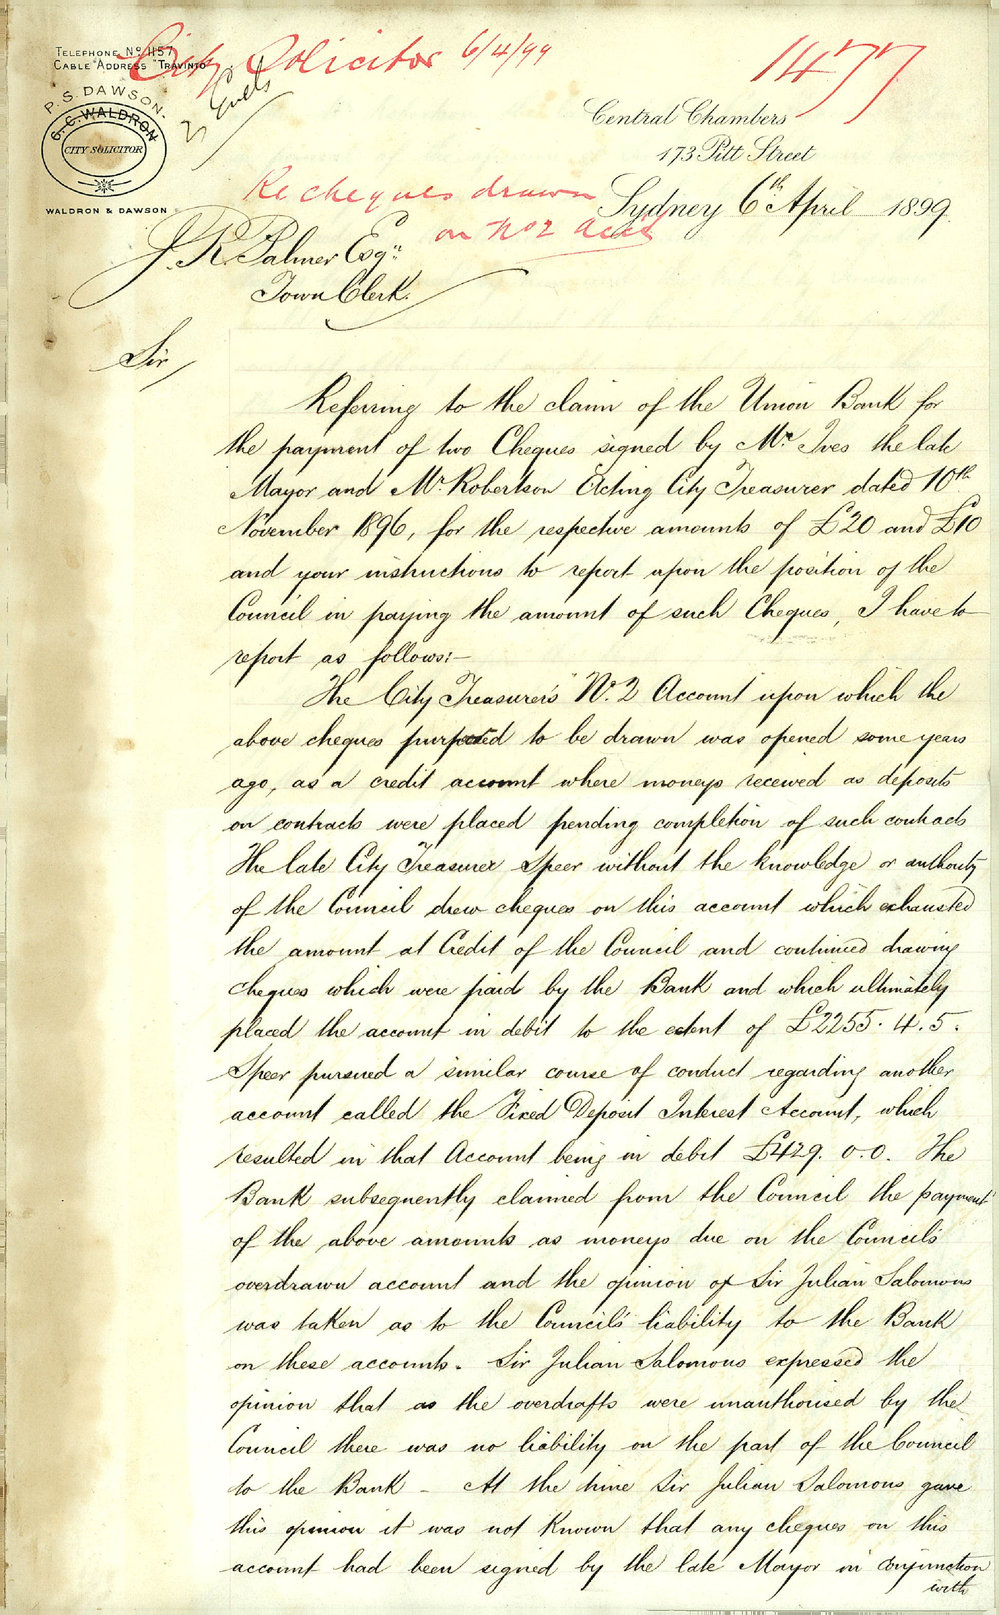 TELEPHONE No 1157
CABLE ADDRESS "TRAVINTO"
City Solicitor 6/4/99
1477
P. S. DAWSON.
C. C. WALDRON
CITY SOLICITOR
WALDRON & DAWSON
Central Chambers
173 Pitt Street
Sydney 6th April 1899.
Re cheques drawn
on No 2 Acct
J. R. Palmer Esq:
Town Clerk.
Sir
Referring to the claim of the Union Bank for
the payment of two Cheques signed by Mr Ives the late
Mayor and Mr Robertson Acting City Treasurer dated 10th
November 1896, for the respective amounts of £20 and £10
and your instructions to report upon the position of the
Council in paying the amount of such Cheques, I have to
report as follows:-
The City Treasurer's "No. 2 Account" upon which the
above cheques purported to be drawn was opened some years
ago, as a credit account where moneys received as deposits
on contracts were placed pending completion of such contracts
The late City Treasurer Speer without the knowledge or authority
of the Council drew cheques on this account which exhausted
the amount at Credit of the Council and continued drawing
cheques which were paid by the Bank and which ultimately
placed the account in debit to the extent of £2255. 4. 5.
Speer pursued a similar course of conduct regarding another
account called the Fixed Deposit Interest Account, which
resulted in that Account being in debit £429. 0. 0. The
Bank subsequently claimed from the Council the payment
of the above amounts as moneys due on the Council's
overdrawn account and the opinion of Sir Julian Salomons
was taken as to the Council's liability to the Bank
on these accounts. Sir Julian Salomons expressed the
opinion that as the overdrafts were unauthorised by the
Council there was no liability on the part of the Council
to the Bank - At the time Sir Julian Salomons gave
this opinion it was not known that any cheques on this
account had been signed by the late Mayor in conjunction
with